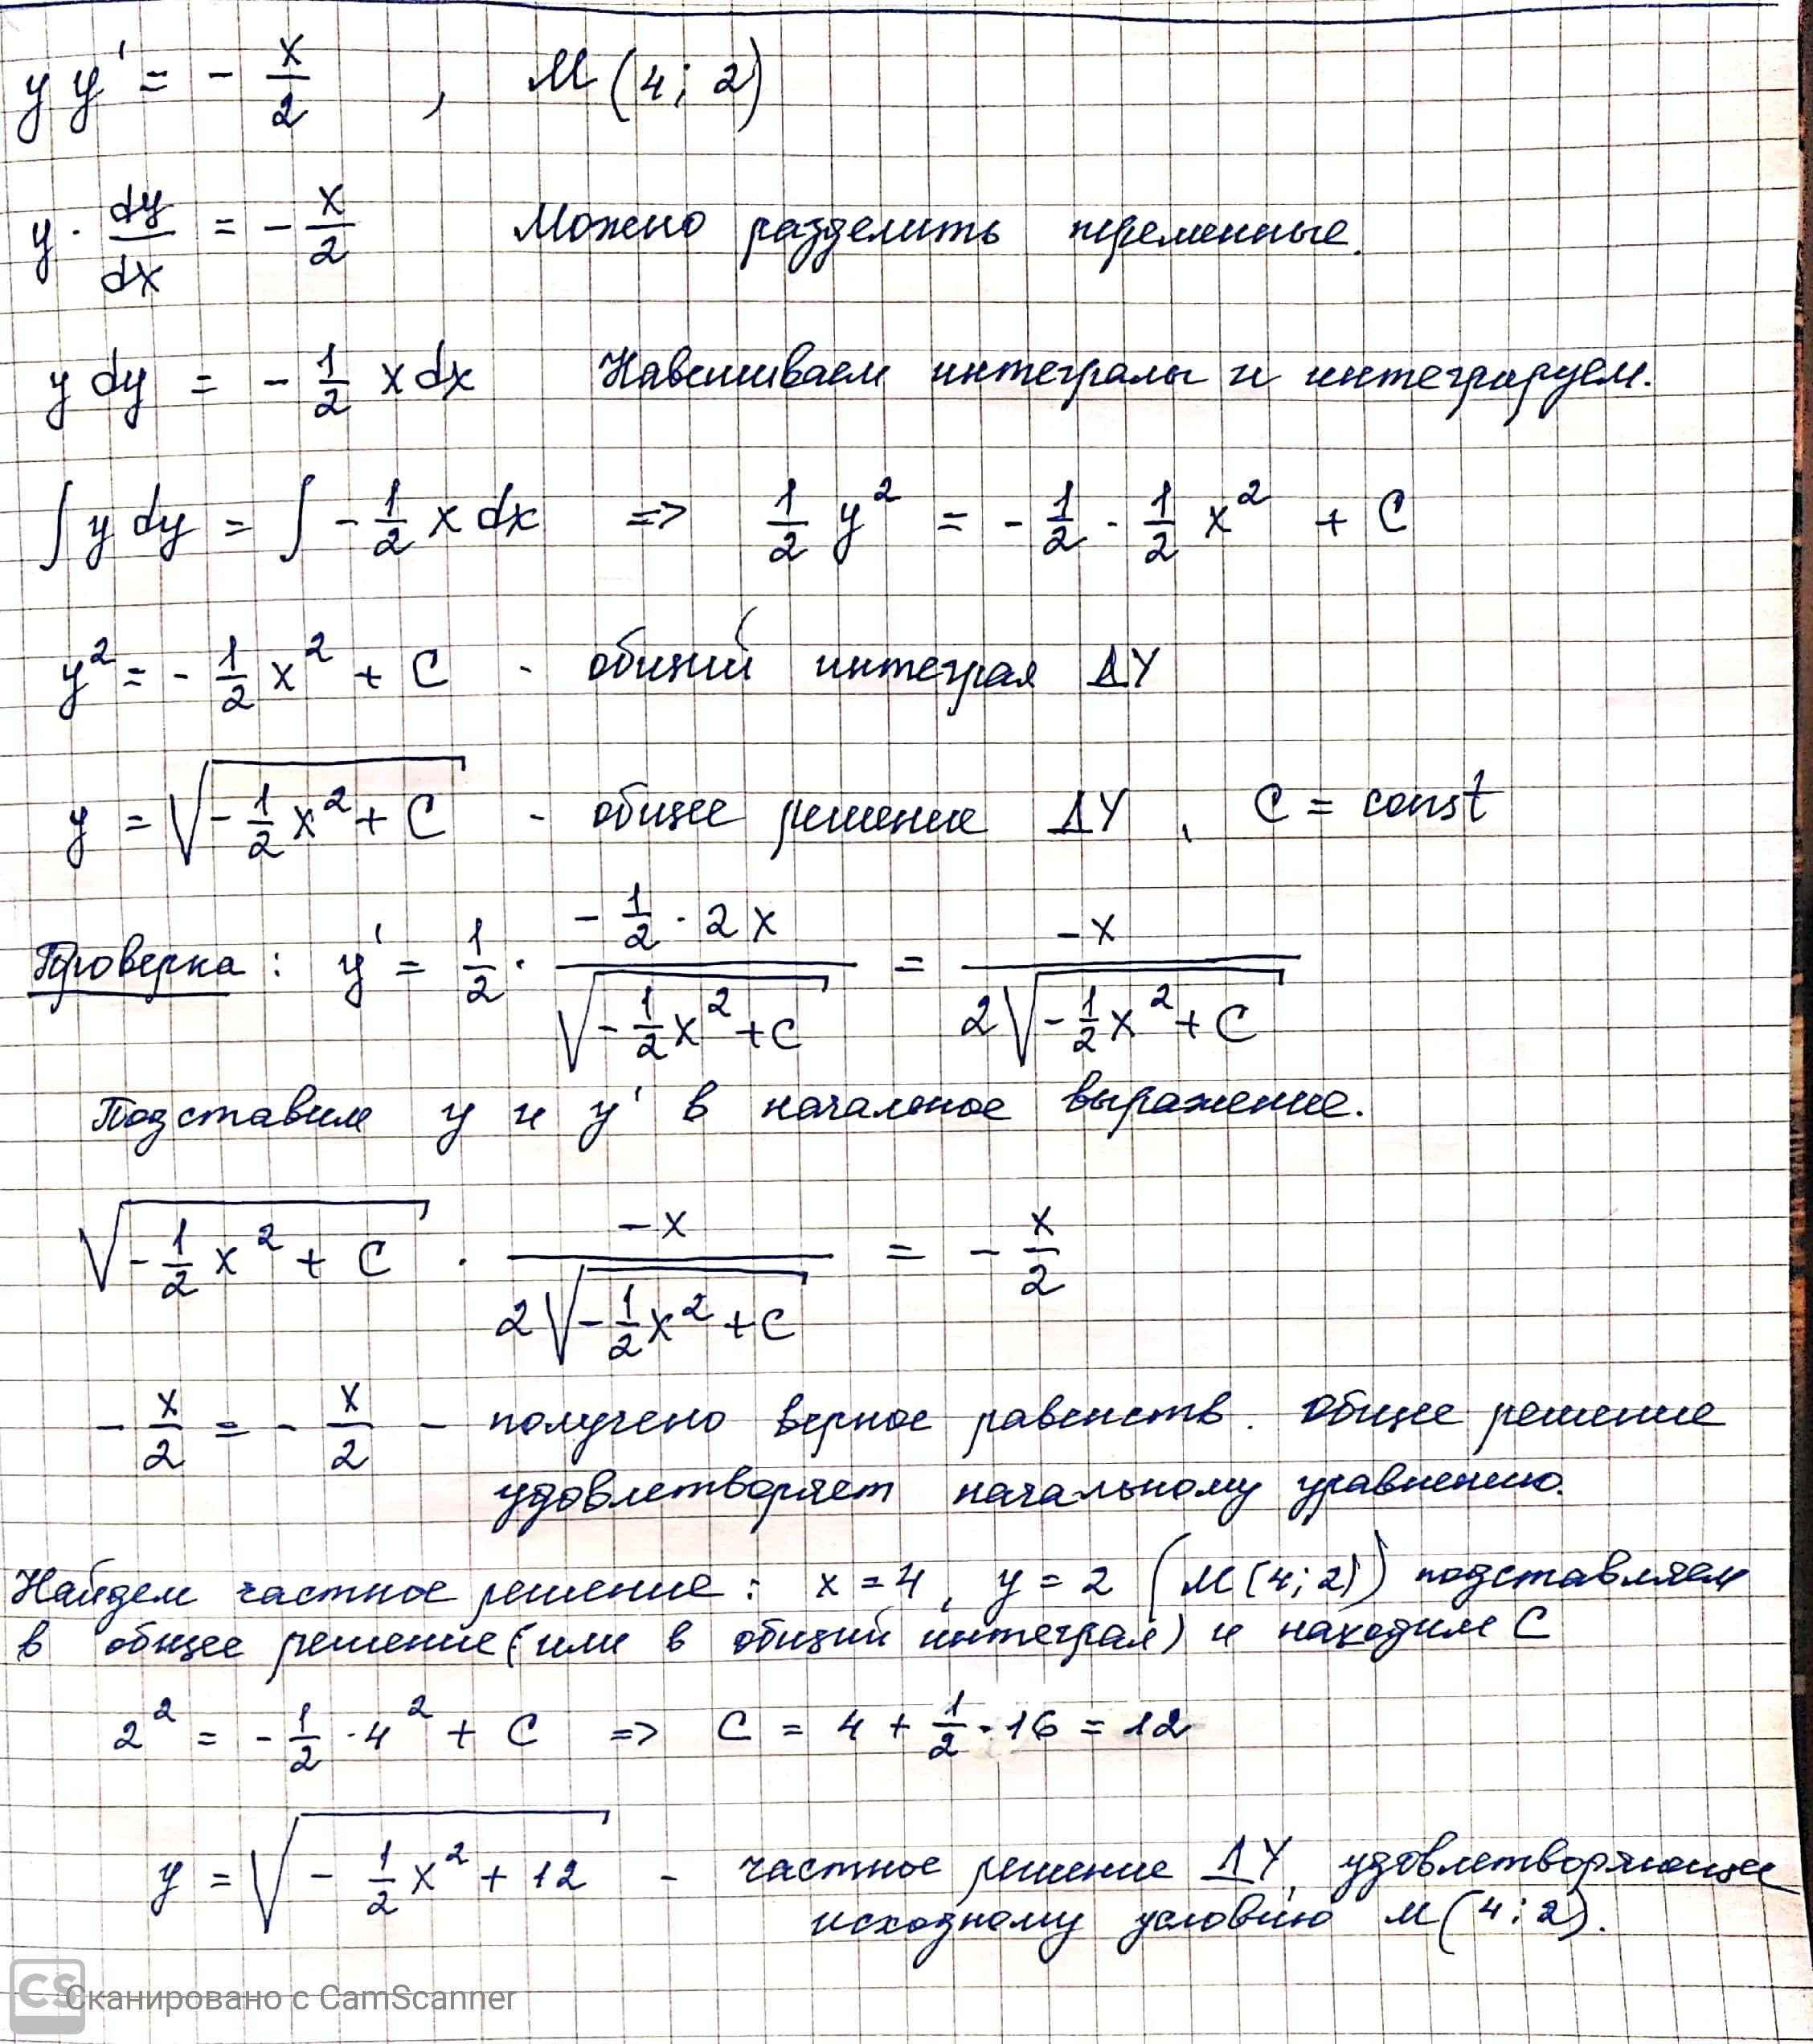 y y' = - x/2 , М (4; 2)
y · dy/dx = - x/2 Можно разделить переменные.
y dy = - 1/2 x dx Навешиваем интегралы и интегрируем.
∫ y dy = ∫ - 1/2 x dx => 1/2 y² = - 1/2 · 1/2 x² + C
y² = - 1/2 x² + C - общий интеграл ДУ
y = √(- 1/2 x² + C) - общее решение ДУ, C = const
Проверка: y' = 1/2 · (- 1/2 · 2x)/√(- 1/2 x² + C) = -x/(2√(- 1/2 x² + C))
Подставим y и y' в начальное выражение.
√(- 1/2 x² + C) · -x/(2√(- 1/2 x² + C)) = - x/2
- x/2 = - x/2 - получено верное равенств. Общее решение
удовлетворяет начальному уравнению.
Найдем частное решение: x = 4, y = 2 (М(4; 2)) подставляем
в общее решение (или в общий интеграл) и находим C
2² = - 1/2 · 4² + C => C = 4 + 1/2 · 16 = 12
y = √(- 1/2 x² + 12) - частное решение ДУ, удовлетворяющее
исходному условию М(4; 2).
CS Сканировано с CamScanner